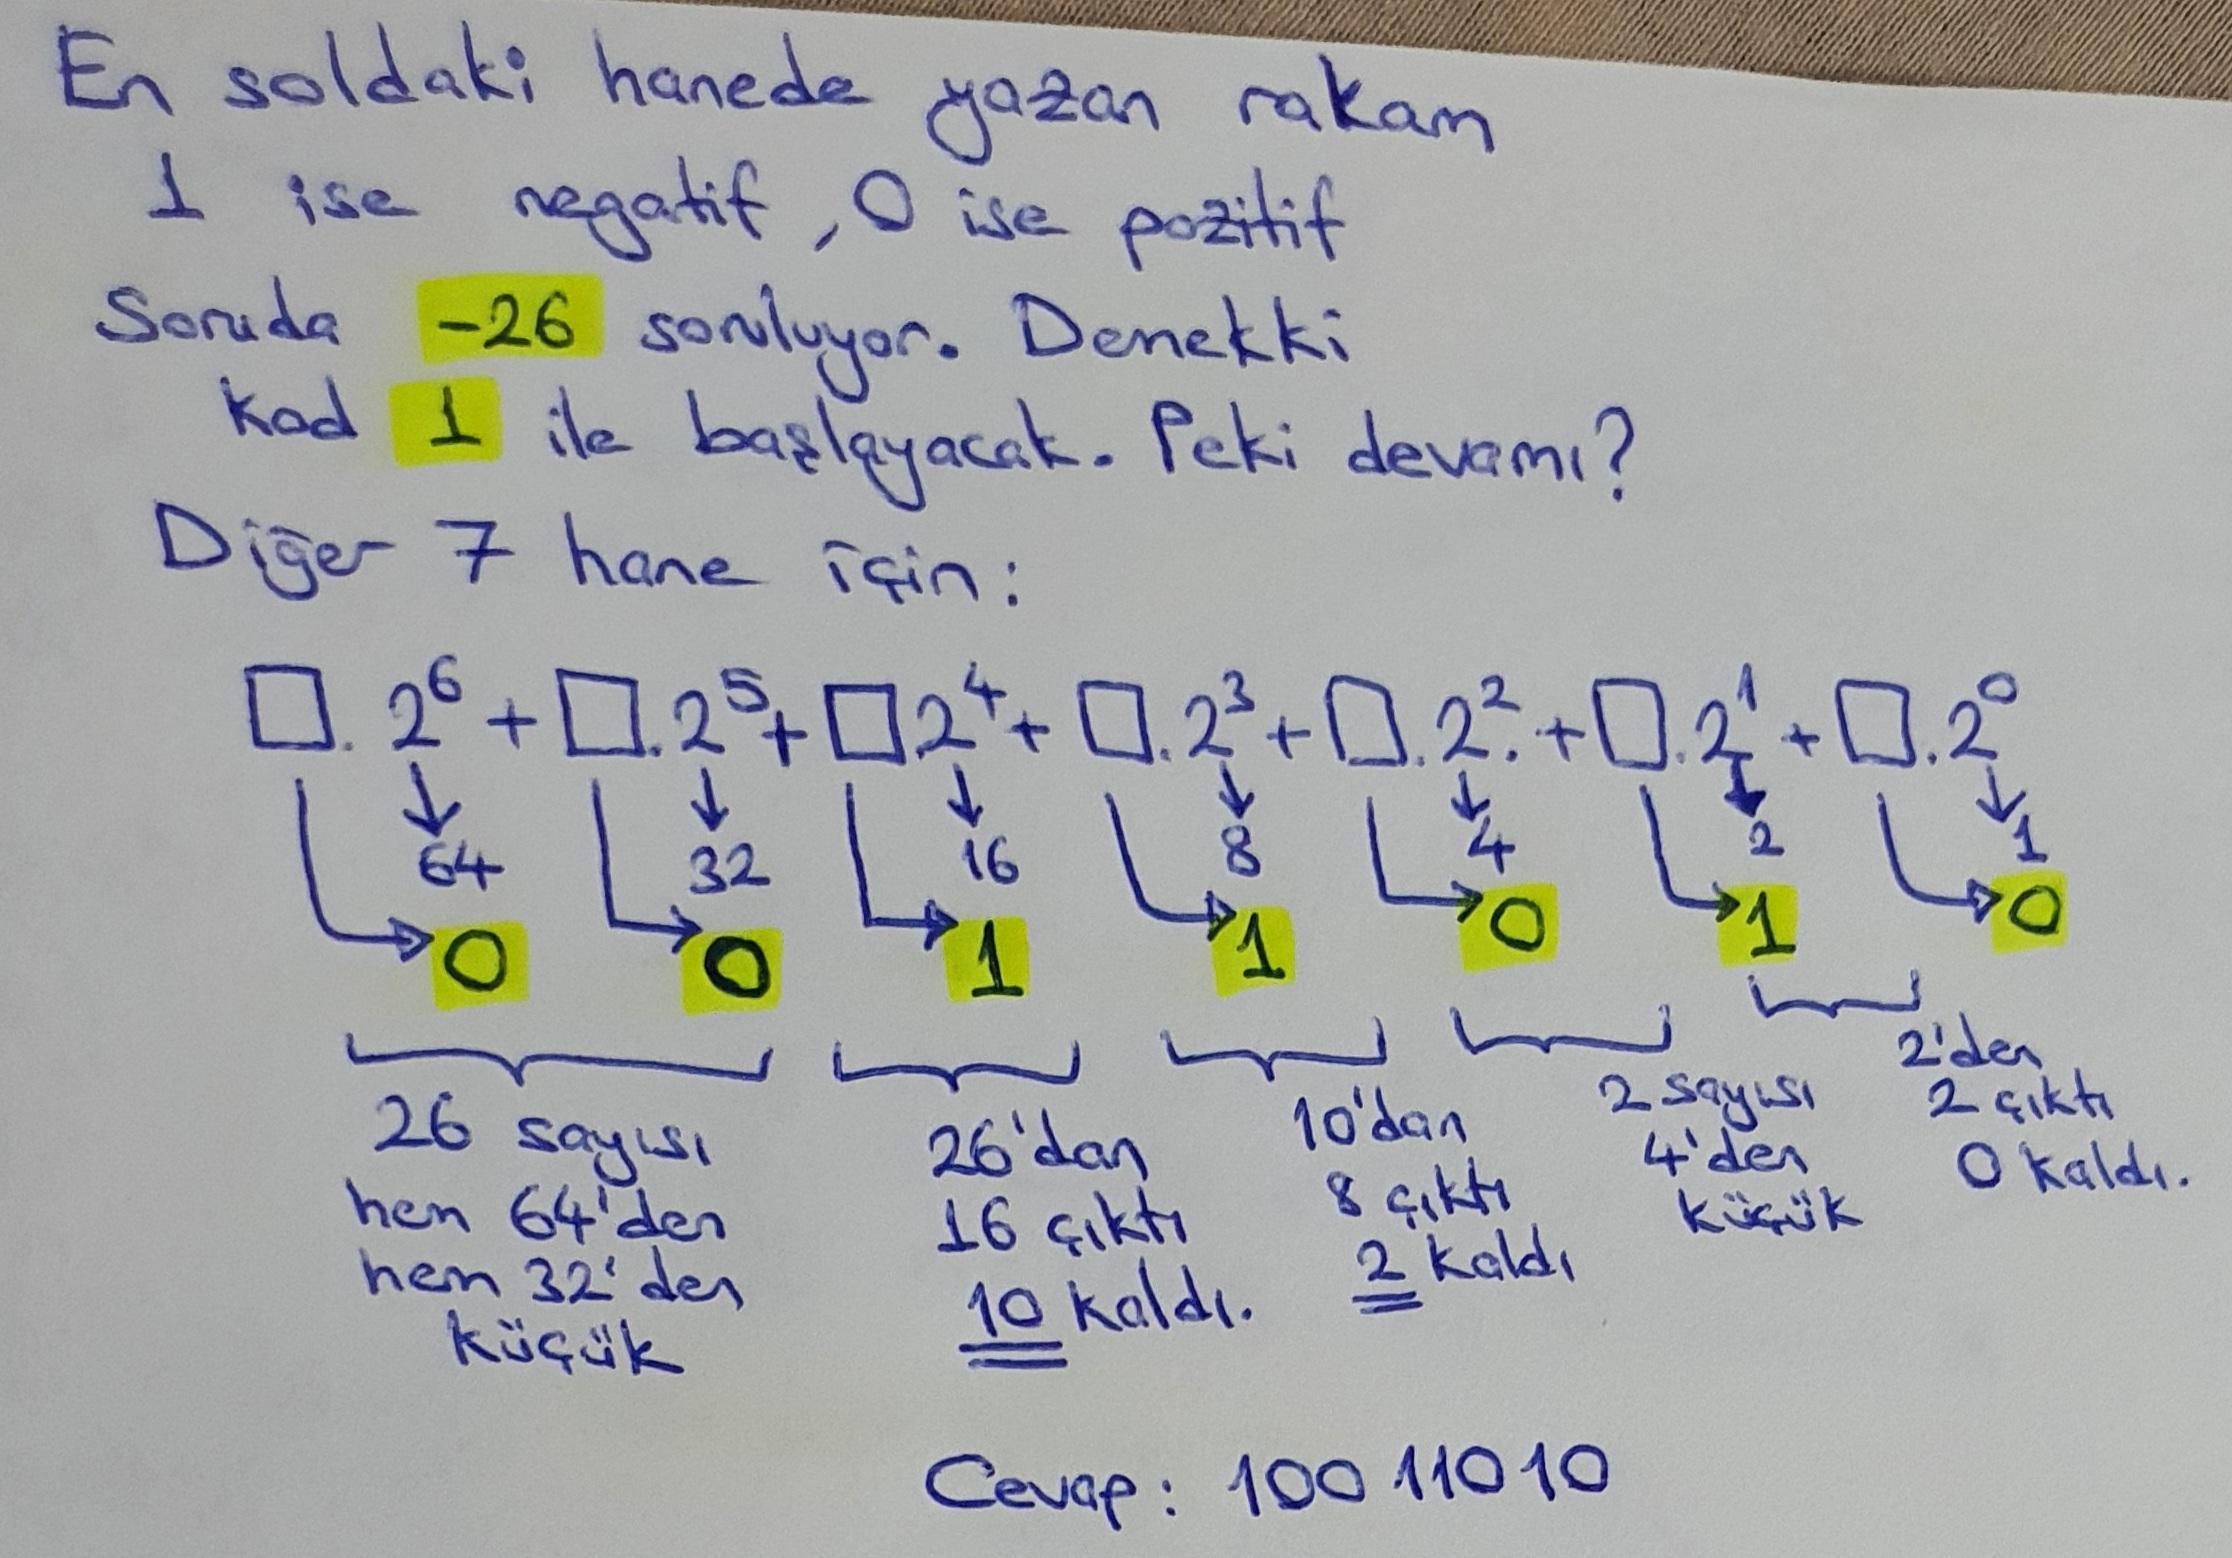 En soldaki hanede yazan rakam
1 ise negatif, 0 ise pozitif
Soruda -26 soruluyor. Demekki
kod 1 ile başlayacak. Peki devamı?
Diğer 7 hane için:
□. 2⁶ + □. 2⁵ + □ 2⁴ + □. 2³ + □. 2². + □. 2¹ + □. 2⁰
64 32 16 8 4 2 1
0 0 1 1 0 1 0
26 sayısı
hem 64'den
hem 32'den
küçük
26'dan
16 çıktı
10 kaldı.
10'dan
8 çıktı
2 kaldı
2 sayısı
4'den
küçük
2'den
2 çıktı
0 kaldı.
Cevap: 10011010